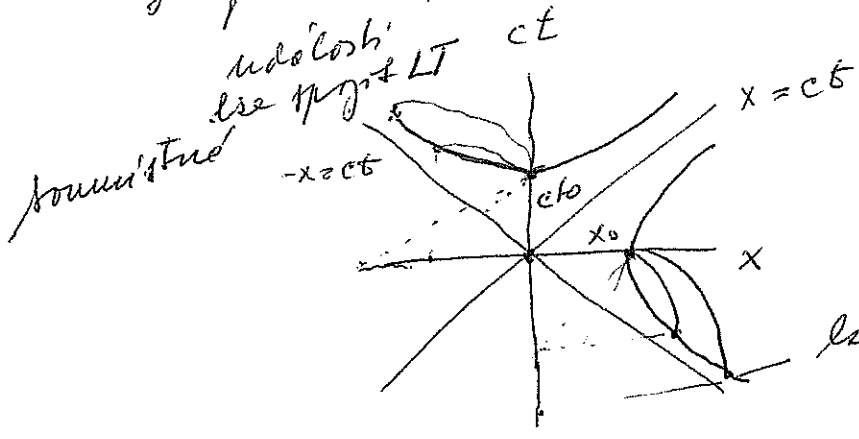 události
lze spojit LT
soumístné
ct
x = ct
-x = ct
ct₀
x₀
x